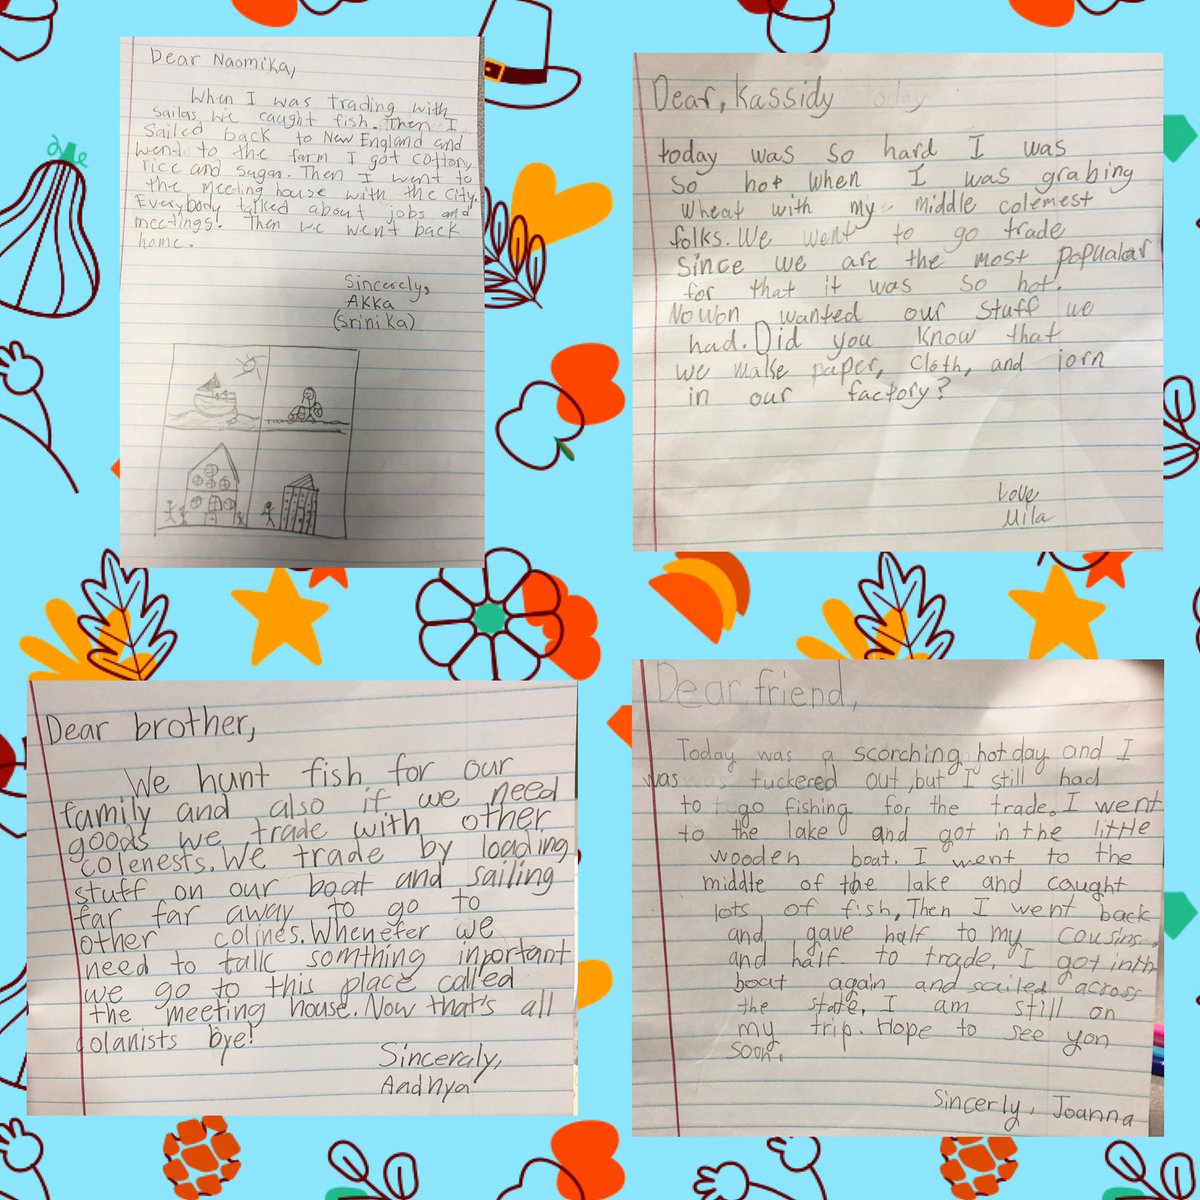 Dear Naomika,
When I was trading with
sailas, we caught fish. Then I
sailed back to New England and
went to the farm I got cotton,
rice and sugar. Then I went to
the meeting house with the city.
Everybody talked about jobs and
meetings! Then we went back
home.
Sincerely,
AKKa
(Srinika)
Dear, Kassidy today
today was so hard I was
so hot when I was grabing
wheat with my middle colemest
folks. We went to go trade
since we are the most popualar
for that it was so hot.
Nowon wanted our stuff we
had. Did you know that
we make paper, cloth, and iorn
in our factory?
Love
Mila
Dear brother,
We hunt fish for our
family and also if we need
goods we trade with other
colenests. We trade by loading
stuff on our boat and sailing
far far away to go to
other colines. Whenefer we
need to talk somthing inportant
we go to this place called
the meeting house. Now that's all
colanists bye!
Sinceraly,
Andhya
Dear friend,
Today was a scorching hot day and I
was tuckered out, but I still had
to go fishing for the trade. I went
to the lake and got in the little
wooden boat. I went to the
middle of the lake and caught
lots of fish, Then I went back
and gave half to my cousins,
and half to trade. I got inth
boat again and sailed across
the state, I am still on
my trip. Hope to see yon
soon.
Sincerly, Joanna